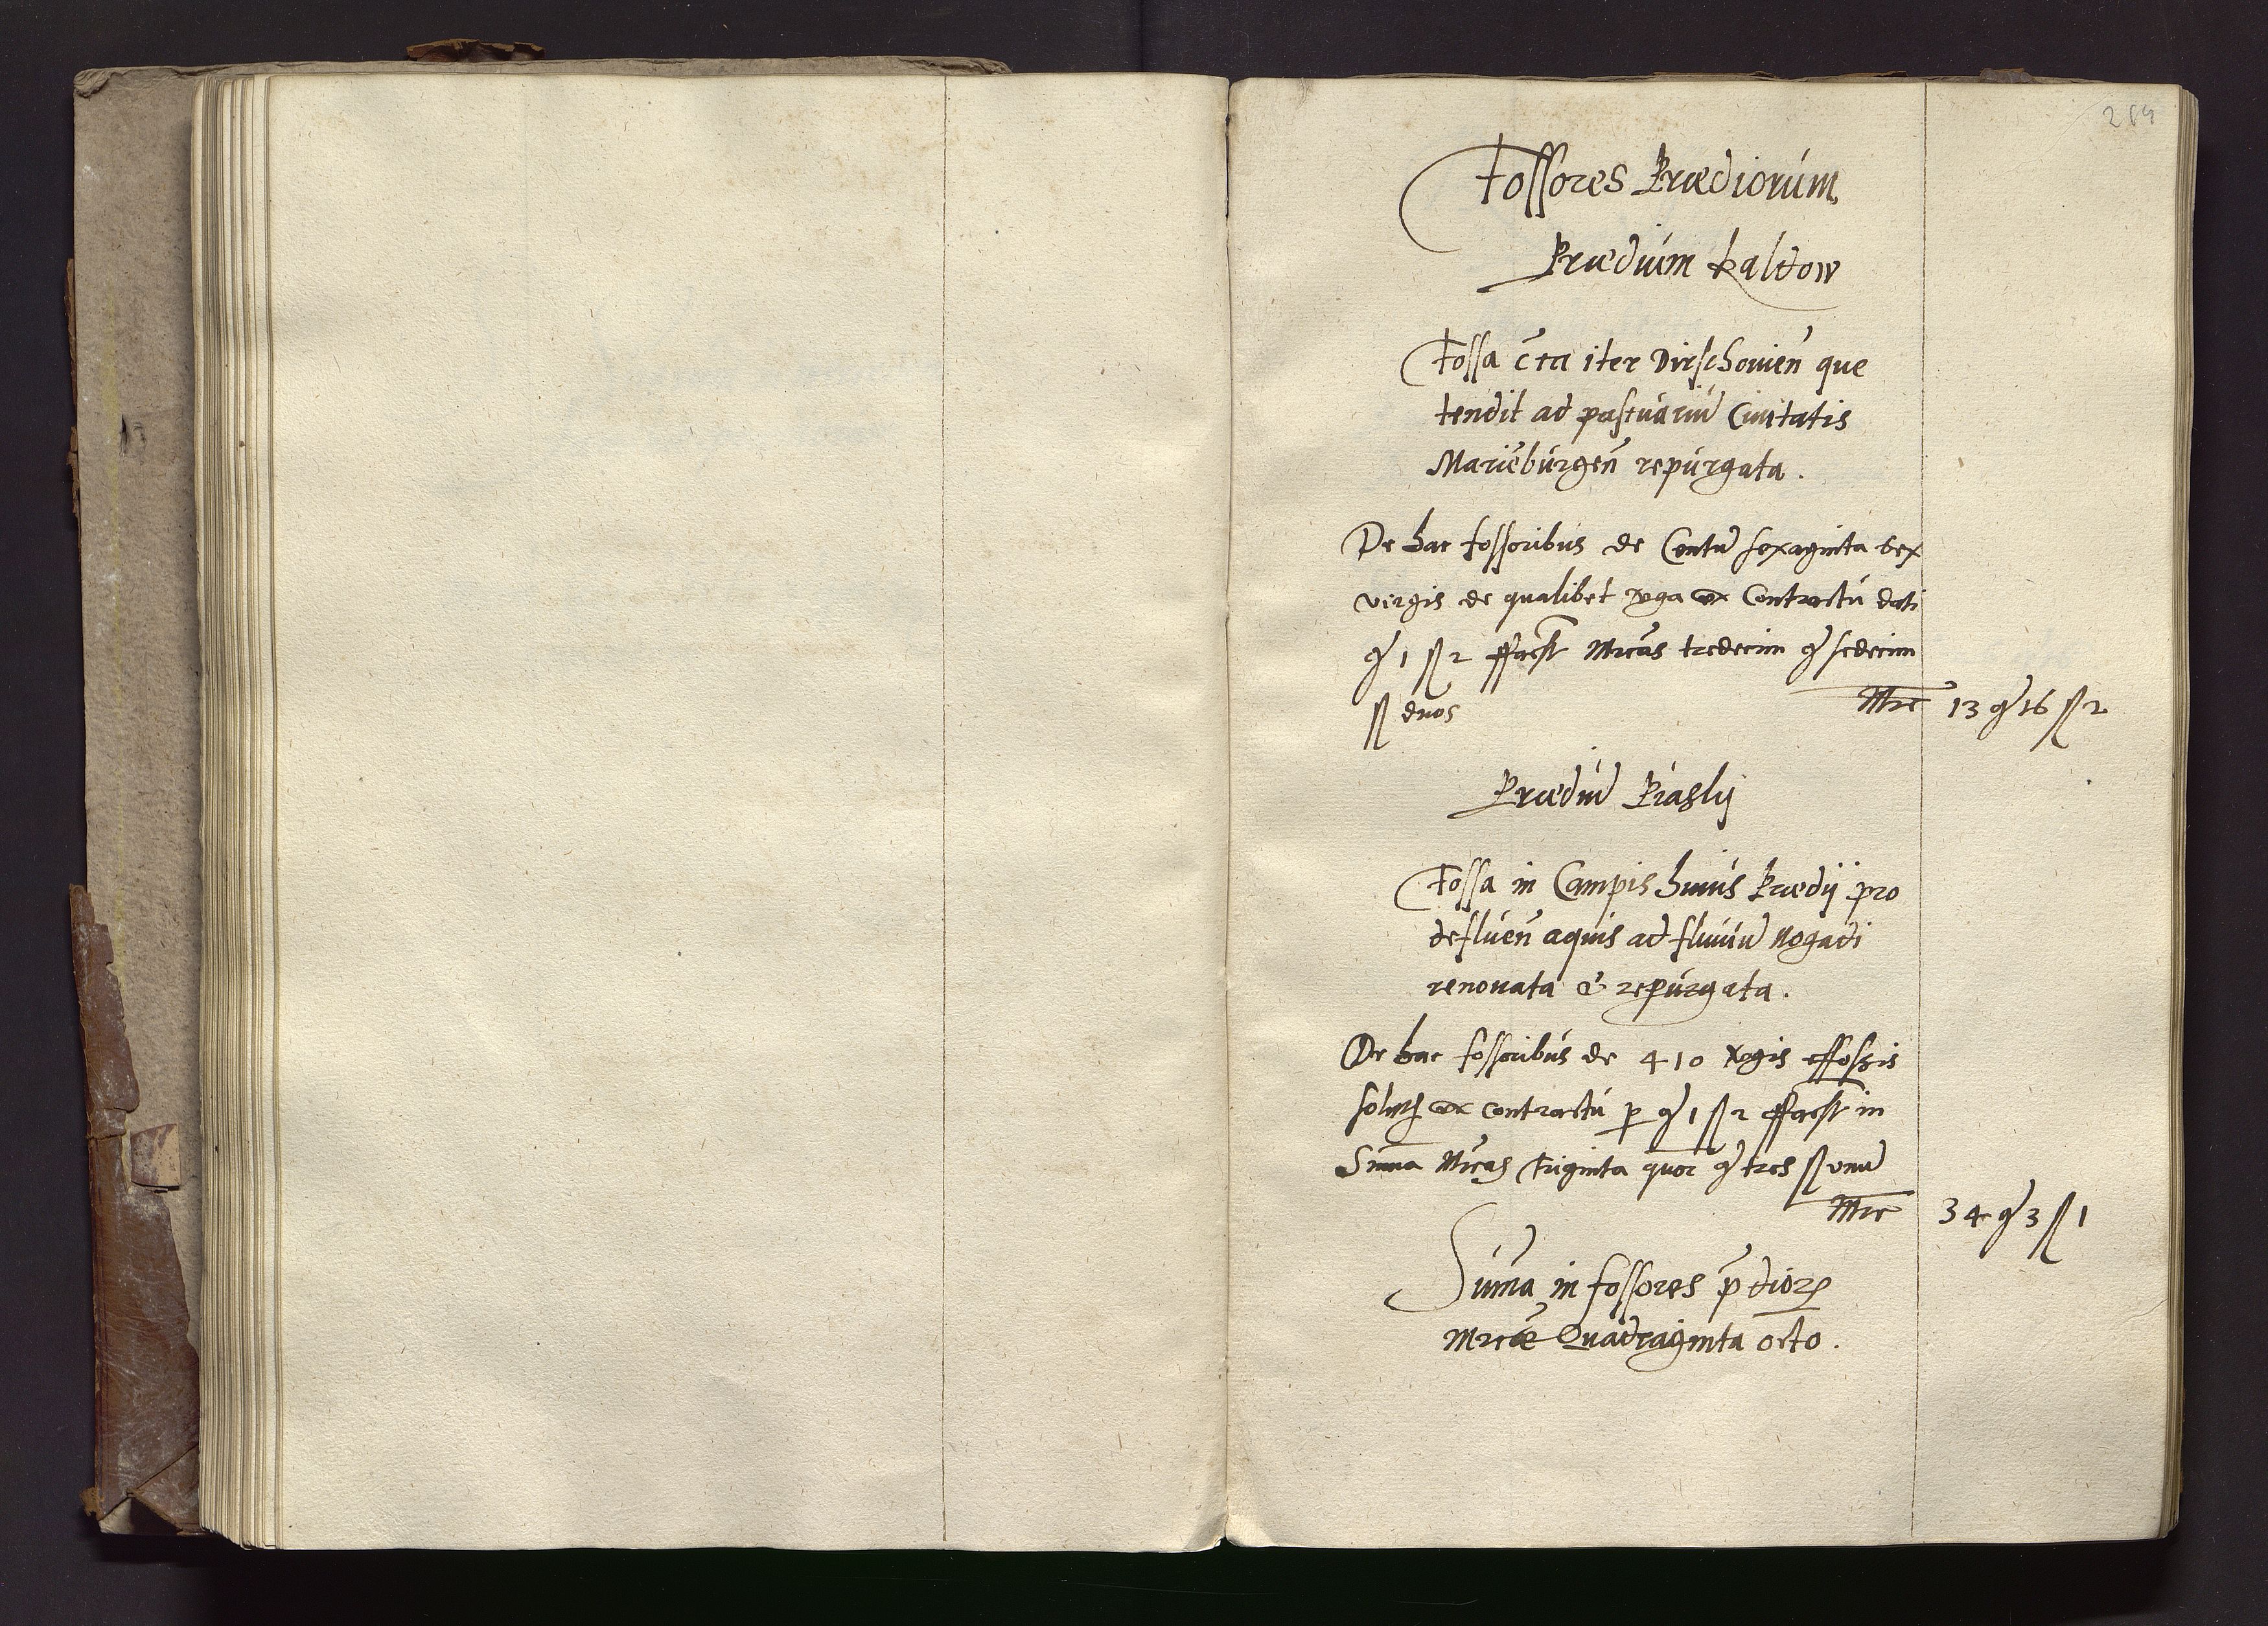 284
Fossores Prædiorum
Prædium Kaldow
Fossa c̃ca iter Dirschouien̄ que
tendit ad pascuariū Ciuitatis
Marieburgen̄ repurgata.
De hac fossoribus de Centū sexaginta sex
virgis de qualibet v̄ga ex Contractu dati
g 1 ß 2 ffacit Mrcas tredecim g sedecim
ß duos
Mrc 13 g 16 ß 2
Prædiū Piaskj
Fossa in Campis huius Prædij pro
defluen̄ aquis ad fluuiū Nogadi
renouata & repurgata.
De hac fossoribus de 410 v̄gis effossis
ex contractu p g 1 ß 2 ffacit in
Suma Mrcas triginta quor g tres ß unū
Mrc 34 g 3 ß 1
Suma in fossores p̄dior
Mrcæ Quadraginta octo.